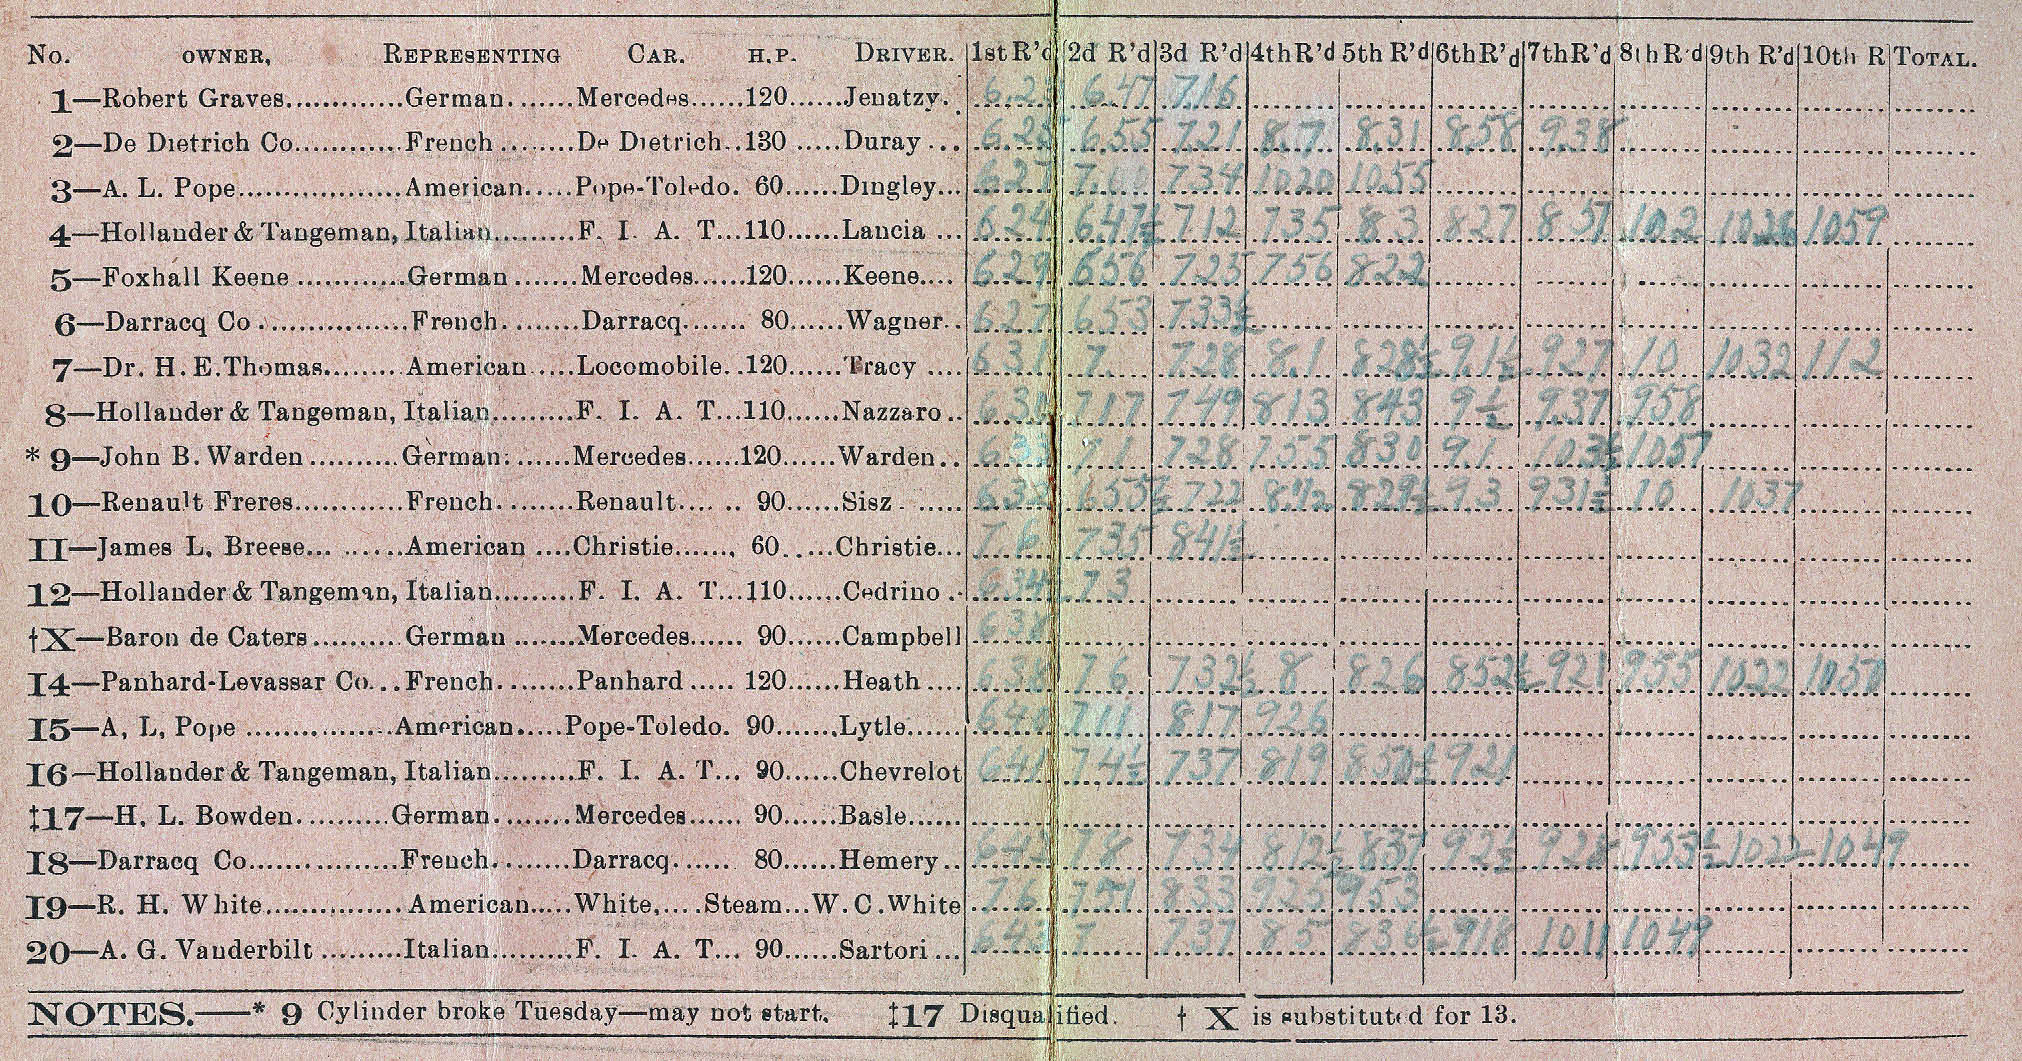 No. OWNER, REPRESENTING CAR. H.P. DRIVER. 1st R'd 2d R'd 3d R'd 4th R'd 5th R'd 6th R'd 7th R'd 8th R'd 9th R'd 10th R TOTAL.
1—Robert Graves.............German.......Mercedes......120......Jenatzy. 6.47 7.16
2—De Dietrich Co............French........De Dietrich..130.....Duray... 6.25 6.55 7.21 8.7 8.31 8.58 9.38
3—A. L. Pope................American.....Pope-Toledo. 60......Dingley... 6.27 734 1020 1055
4—Hollander & Tangeman, Italian.........F. I. A. T...110......Lancia... 624 647½ 712 735 83 827 857 102 1026 1059
5—Foxhall Keene............German.......Mercedes......120......Keene.... 629 656 725 756 822
6—Darracq Co...............French........Darracq....... 80......Wagner.. 627 653 733½
7—Dr. H. E. Thomas........American....Locomobile..120......Tracy.... 631 7 728 8.1 828½ 91½ 927 10 1032 112
8—Hollander & Tangeman, Italian.........F. I. A. T...110......Nazzaro.. 717 749 813 843 9½ 937 958
* 9—John B. Warden..........German.......Mercedes......120......Warden.. 71 728 755 830 91 103½ 1057
10—Renault Freres............French........Renault...... 90......Sisz...... 655½ 722 8½ 829½ 93 931½ 10 1037
11—James L. Breese.........American....Christie....... 60......Christie... 76 735 841½
12—Hollander & Tangeman, Italian.........F. I. A. T...110......Cedrino.. 634 73
†X—Baron de Caters..........German.......Mercedes...... 90......Campbell 638
14—Panhard-Levassar Co...French........Panhard..... 120......Heath.... 638 76 732½ 8 826 852½ 921 955 1022
15—A, L, Pope................American.....Pope-Toledo. 90.......Lytle...... 640 711 817 926
16—Hollander & Tangeman, Italian.........F. I. A. T... 90......Chevrelot 641 74½ 737 819 850½ 921
‡17—H. L. Bowden..........German........Mercedes...... 90......Basle......
18—Darracq Co..............French........Darracq...... 80......Hemery.. 78 734 812½ 837 92½ 928 953½ 1022 1049
19—R. H. White..............American.....White,....Steam...W. C. White 76 751 833 925 953
20—A. G. Vanderbilt.........Italian.........F. I. A. T... 90......Sartori... 7 737 85 836½ 918 1011 1049
NOTES.—* 9 Cylinder broke Tuesday—may not start. ‡17 Disqualified. † X is substituted for 13.